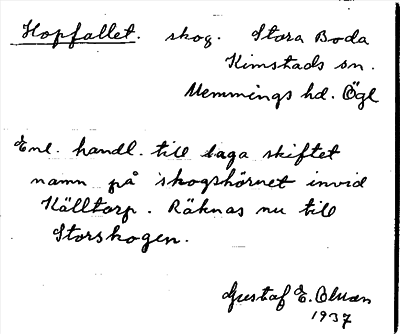 Hopfallet. skog. Stora Boda
Kimstads sn.
Memmings hd. Ögl
Enl. handl. till laga skiftet
namn på skogshörnet invid
Källtorp. Räknas nu till
Storskogen.
Gustaf E.
1937